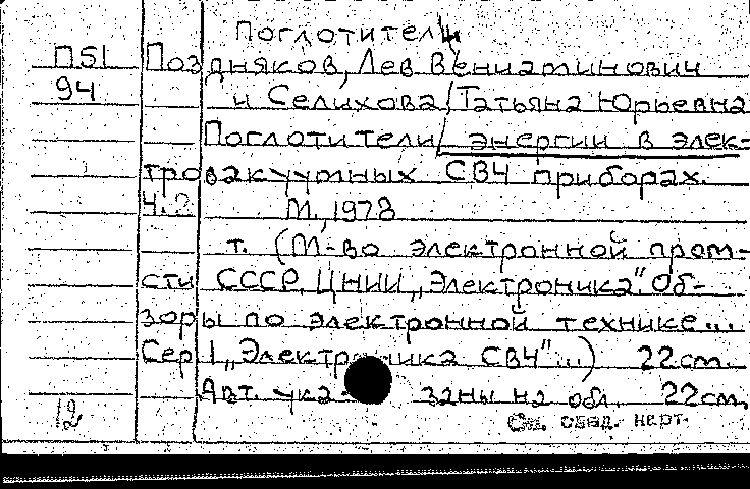 Поглотители
П51 Поздняков, Лев Вениаминович
94 и Селихова, Татьяна Юрьевна
Поглотители энергии в элек-
тровакуумных СВЧ приборах.
Ч. 2 М., 1978
т. (М-во электронной пром-
сти СССР, ЦНИИ „Электроника". Об-
зоры по электронной технике...
Сер 1 „Электроника СВЧ"...) 22 см.
Авт. ука- заны на обл. 22 см.
12 См. свод. карт.